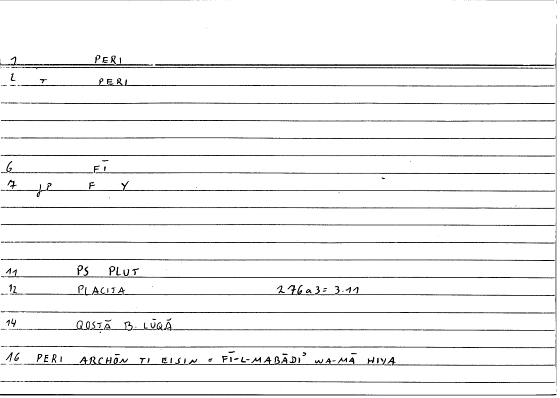 1 PERI
2 T PERI
6 FĪ
7 jP F Y
11 PS PLUT
12 PLACITA 276a3 = 3.11
14 QOSṬĀ B. LŪQĀ
16 PERI ARCHŌN TI EISIN = FĪ-L-MABĀDI' WA-MĀ HIYA